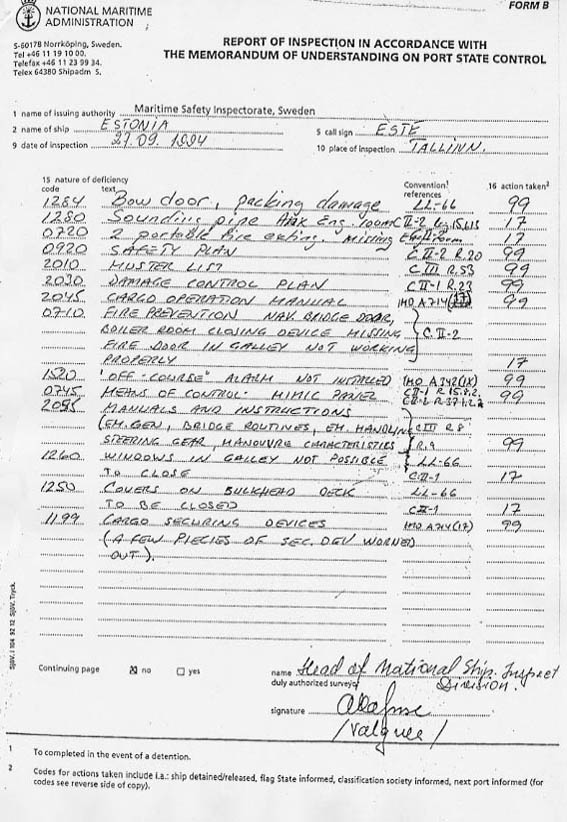 NATIONAL MARITIME
ADMINISTRATION
FORM B
S-60178 Norrköping, Sweden.
Tel +46 11 19 10 00.
Telefax +46 11 23 99 34.
Telex 64380 Shipadm S.
REPORT OF INSPECTION IN ACCORDANCE WITH
THE MEMORANDUM OF UNDERSTANDING ON PORT STATE CONTROL
1 name of issuing authority Maritime Safety Inspectorate, Sweden
2 name of ship ESTONIA 5 call sign ESTE
9 date of inspection 27.09.1994 10 place of inspection TALLINN.
15 nature of deficiency Convention¹ 16 action taken²
code text references
1284 Bow door, packing damage LL-66 99
1280 Sounding pipe Aux Eng. room C II-2 17
0720 2 portable fire exting. Missing 17
0920 SAFETY PLAN C II-2 R.20 99
2010 MUSTER LIST C III R.53 99
2030 DAMAGE CONTROL PLAN C II-1 R.23 99
2045 CARGO OPERATION MANUAL IMO A714(17) 99
0710 FIRE PREVENTION NAV. BRIDGE DOOR,
BOILER ROOM CLOSING DEVICE MISSING C II-2
FIRE DOOR IN GALLEY NOT WORKING
PROPERLY 17
1520 "OFF-COURSE" ALARM NOT INSTALLED IMO A342(IX) 99
0745 MEANS OF CONTROL. MIMIC PANEL CII-1 R 15.8.2. 99
CII-2 R.37.1.2.2
2055 MANUALS AND INSTRUCTIONS
(EM.GEN, BRIDGE ROUTINES, EM. HANDLING CIII R8
STEERING GEAR, MANOUVRE CHARACTERISTICS R.9 99
1260 WINDOWS IN GALLEY NOT POSSIBLE LL-66
TO CLOSE C II-1 17
1250 COVERS ON BULKHEAD DECK LL-66
TO BE CLOSED C II-1 17
1199 CARGO SECURING DEVICES IMO A714(17) 99
(A FEW PIECIES OF SEC. DEV WORNED
OUT).
SjöV. I 104 92 12 SjöV. Tryck.
Continuing page ☒ no ☐ yes
name Head of National Ship. Inspect
duly authorized surveyor Division.
signature
1 To completed in the event of a detention.
2 Codes for actions taken include i.a.: ship detained/released, flag State informed, classification society informed, next port informed (for
codes see reverse side of copy).